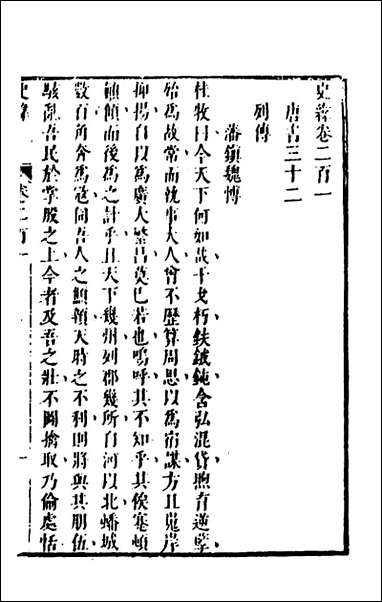 史緯卷二百一
唐書三十二
列傳
藩鎮魏博
杜牧曰今天下何如哉干戈朽鈇鉞鈍含弘混貸煦育逆孽
殆為故常而執事大人曾不歷算周思以為宿謀方且嵬岸
抑揚自以為廣大繁昌莫已若也嗚呼其不知乎其俟蹇頓
顛傾而後為之計乎且天下幾州列郡幾所自河以北蟠城
數百角奔為寇伺吾人之顦顇天時之不利則將與其朋伍
駭亂吾民於掌股之上今者及吾之壯不圖擒取乃偷處恬
史緯 卷二百一 一